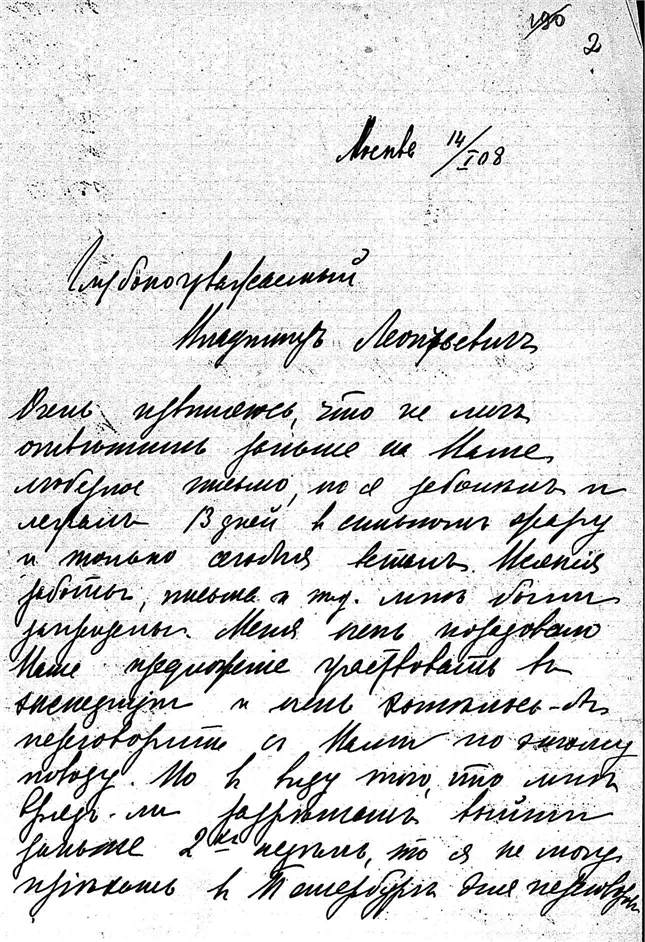 190
2
Москва 14/I 08
Глубокоуважаемый
Владимиръ Леонтьевичъ
Очень извиняюсь, что не могъ
отвѣтить раньше на Ваше
любезное письмо, но я заболѣлъ и
лежалъ 13 дней въ сильномъ жару
и только сегодня всталъ. Всякія
работы, письма и т.д. мнѣ были
запрещены. Меня очень порадовало
Ваше предложеніе участвовать въ
экспедиціи и очень хотѣлось-бы
переговорить съ Вами по этому
поводу. Но въ виду того, что мнѣ
врядъ-ли разрѣшатъ выйти
раньше 2хъ недѣль, то я не могу
пріѣхать въ Петербургъ для переговоровъ